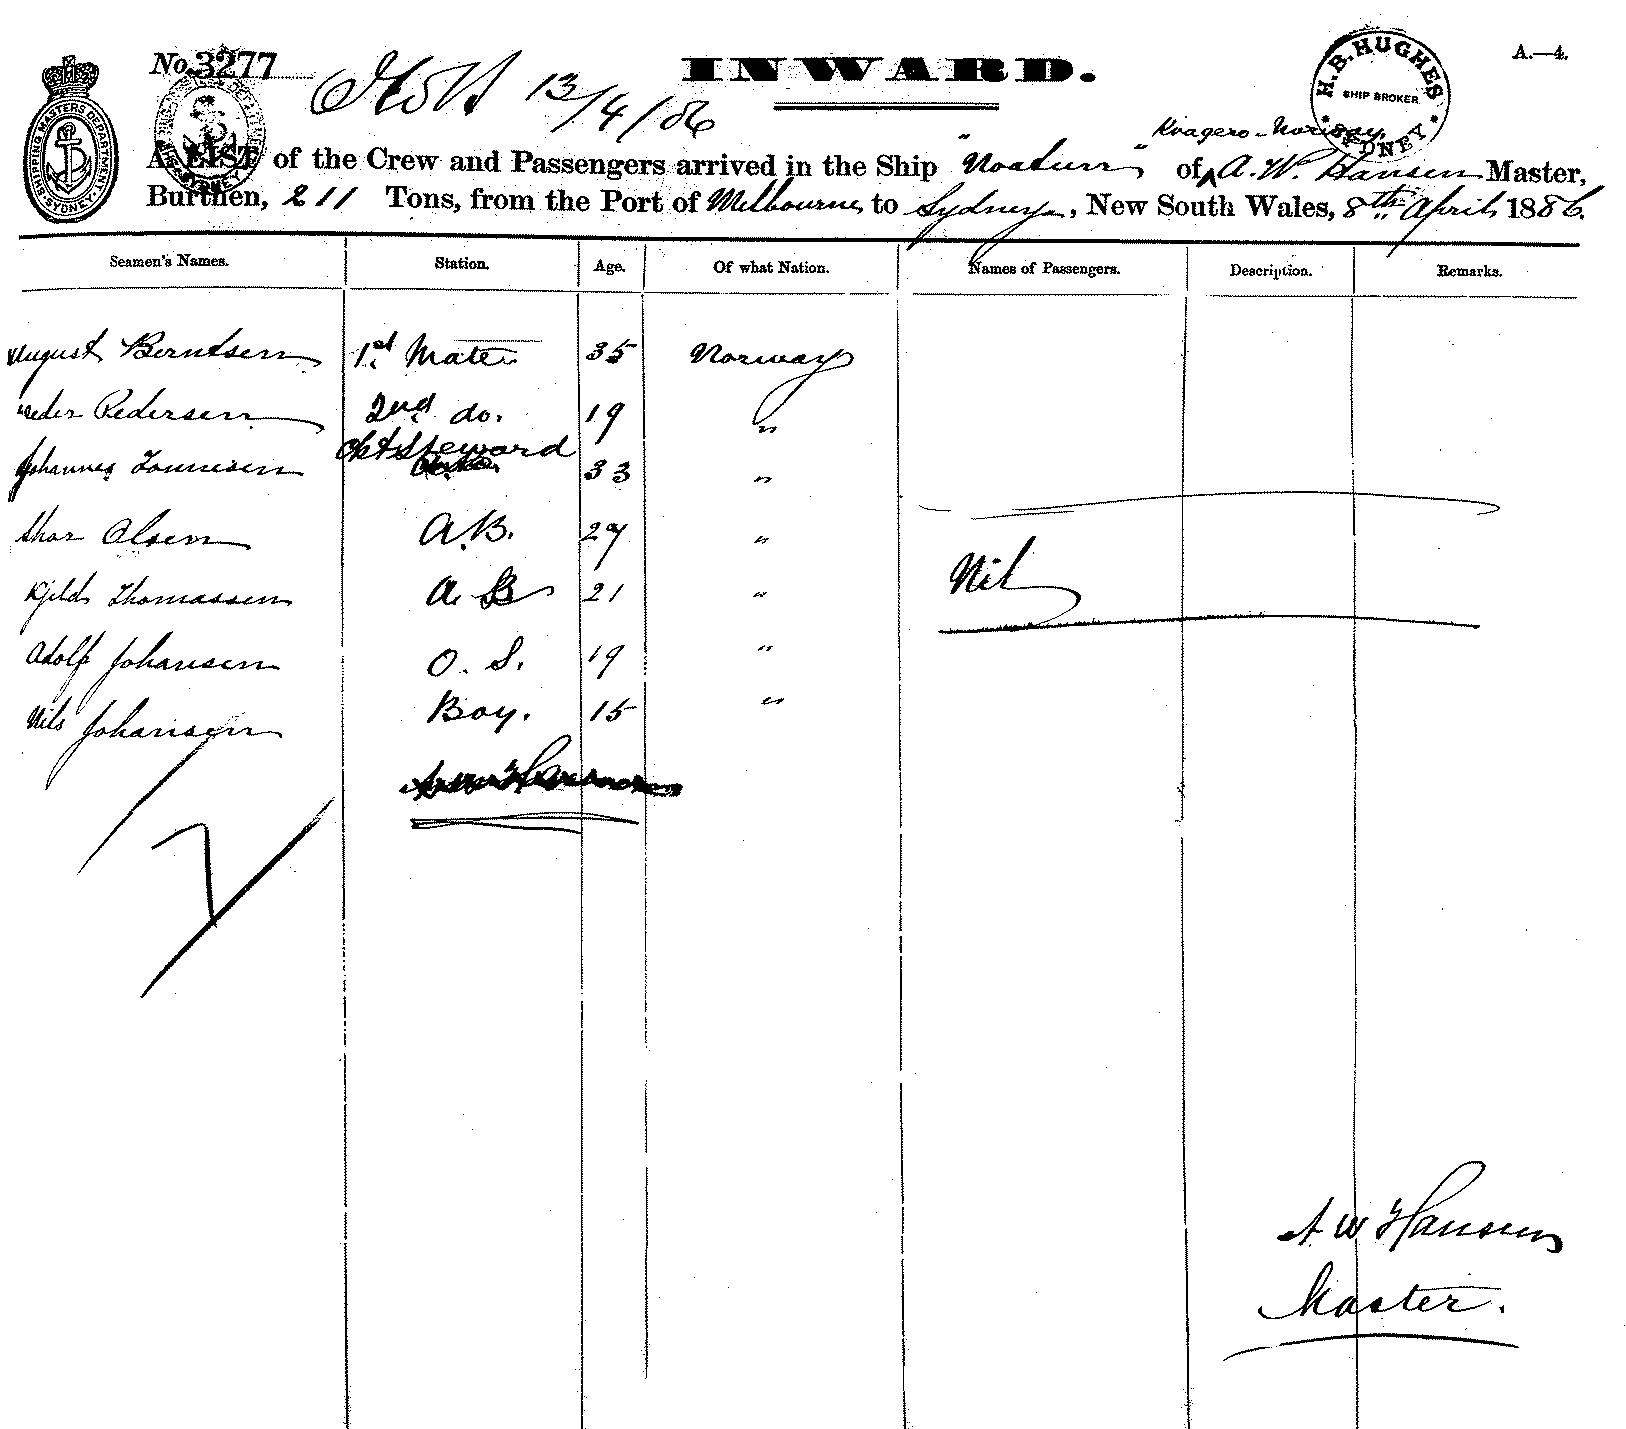 No. 3277 13/4/86 INWARD. A.—4.
SHIPPING MASTERS DEPARTMENT SYDNEY
H. B. HUGHES SHIP BROKER SYDNEY
Kragero - Norway.
A LIST of the Crew and Passengers arrived in the Ship "Noatun" of A. W. Hansen Master,
Burthen, 211 Tons, from the Port of Melbourne to Sydney, New South Wales, 8th April 1886.
Seamen's Names. Station. Age. Of what Nation. Names of Passengers. Description. Remarks.
August Berntsen 1st Mate 35 Norway
Peder Pedersen 2nd do. 19 "
Johannes Tonnesen Ck & Steward 33 "
Thor Olsen A.B. 27 "
Kjeld Thomassen A. B 21 "
Nil
Adolf Johansen O. S. 19 "
Nils Johansen Boy. 15 "
7
A W Hansen
Master.